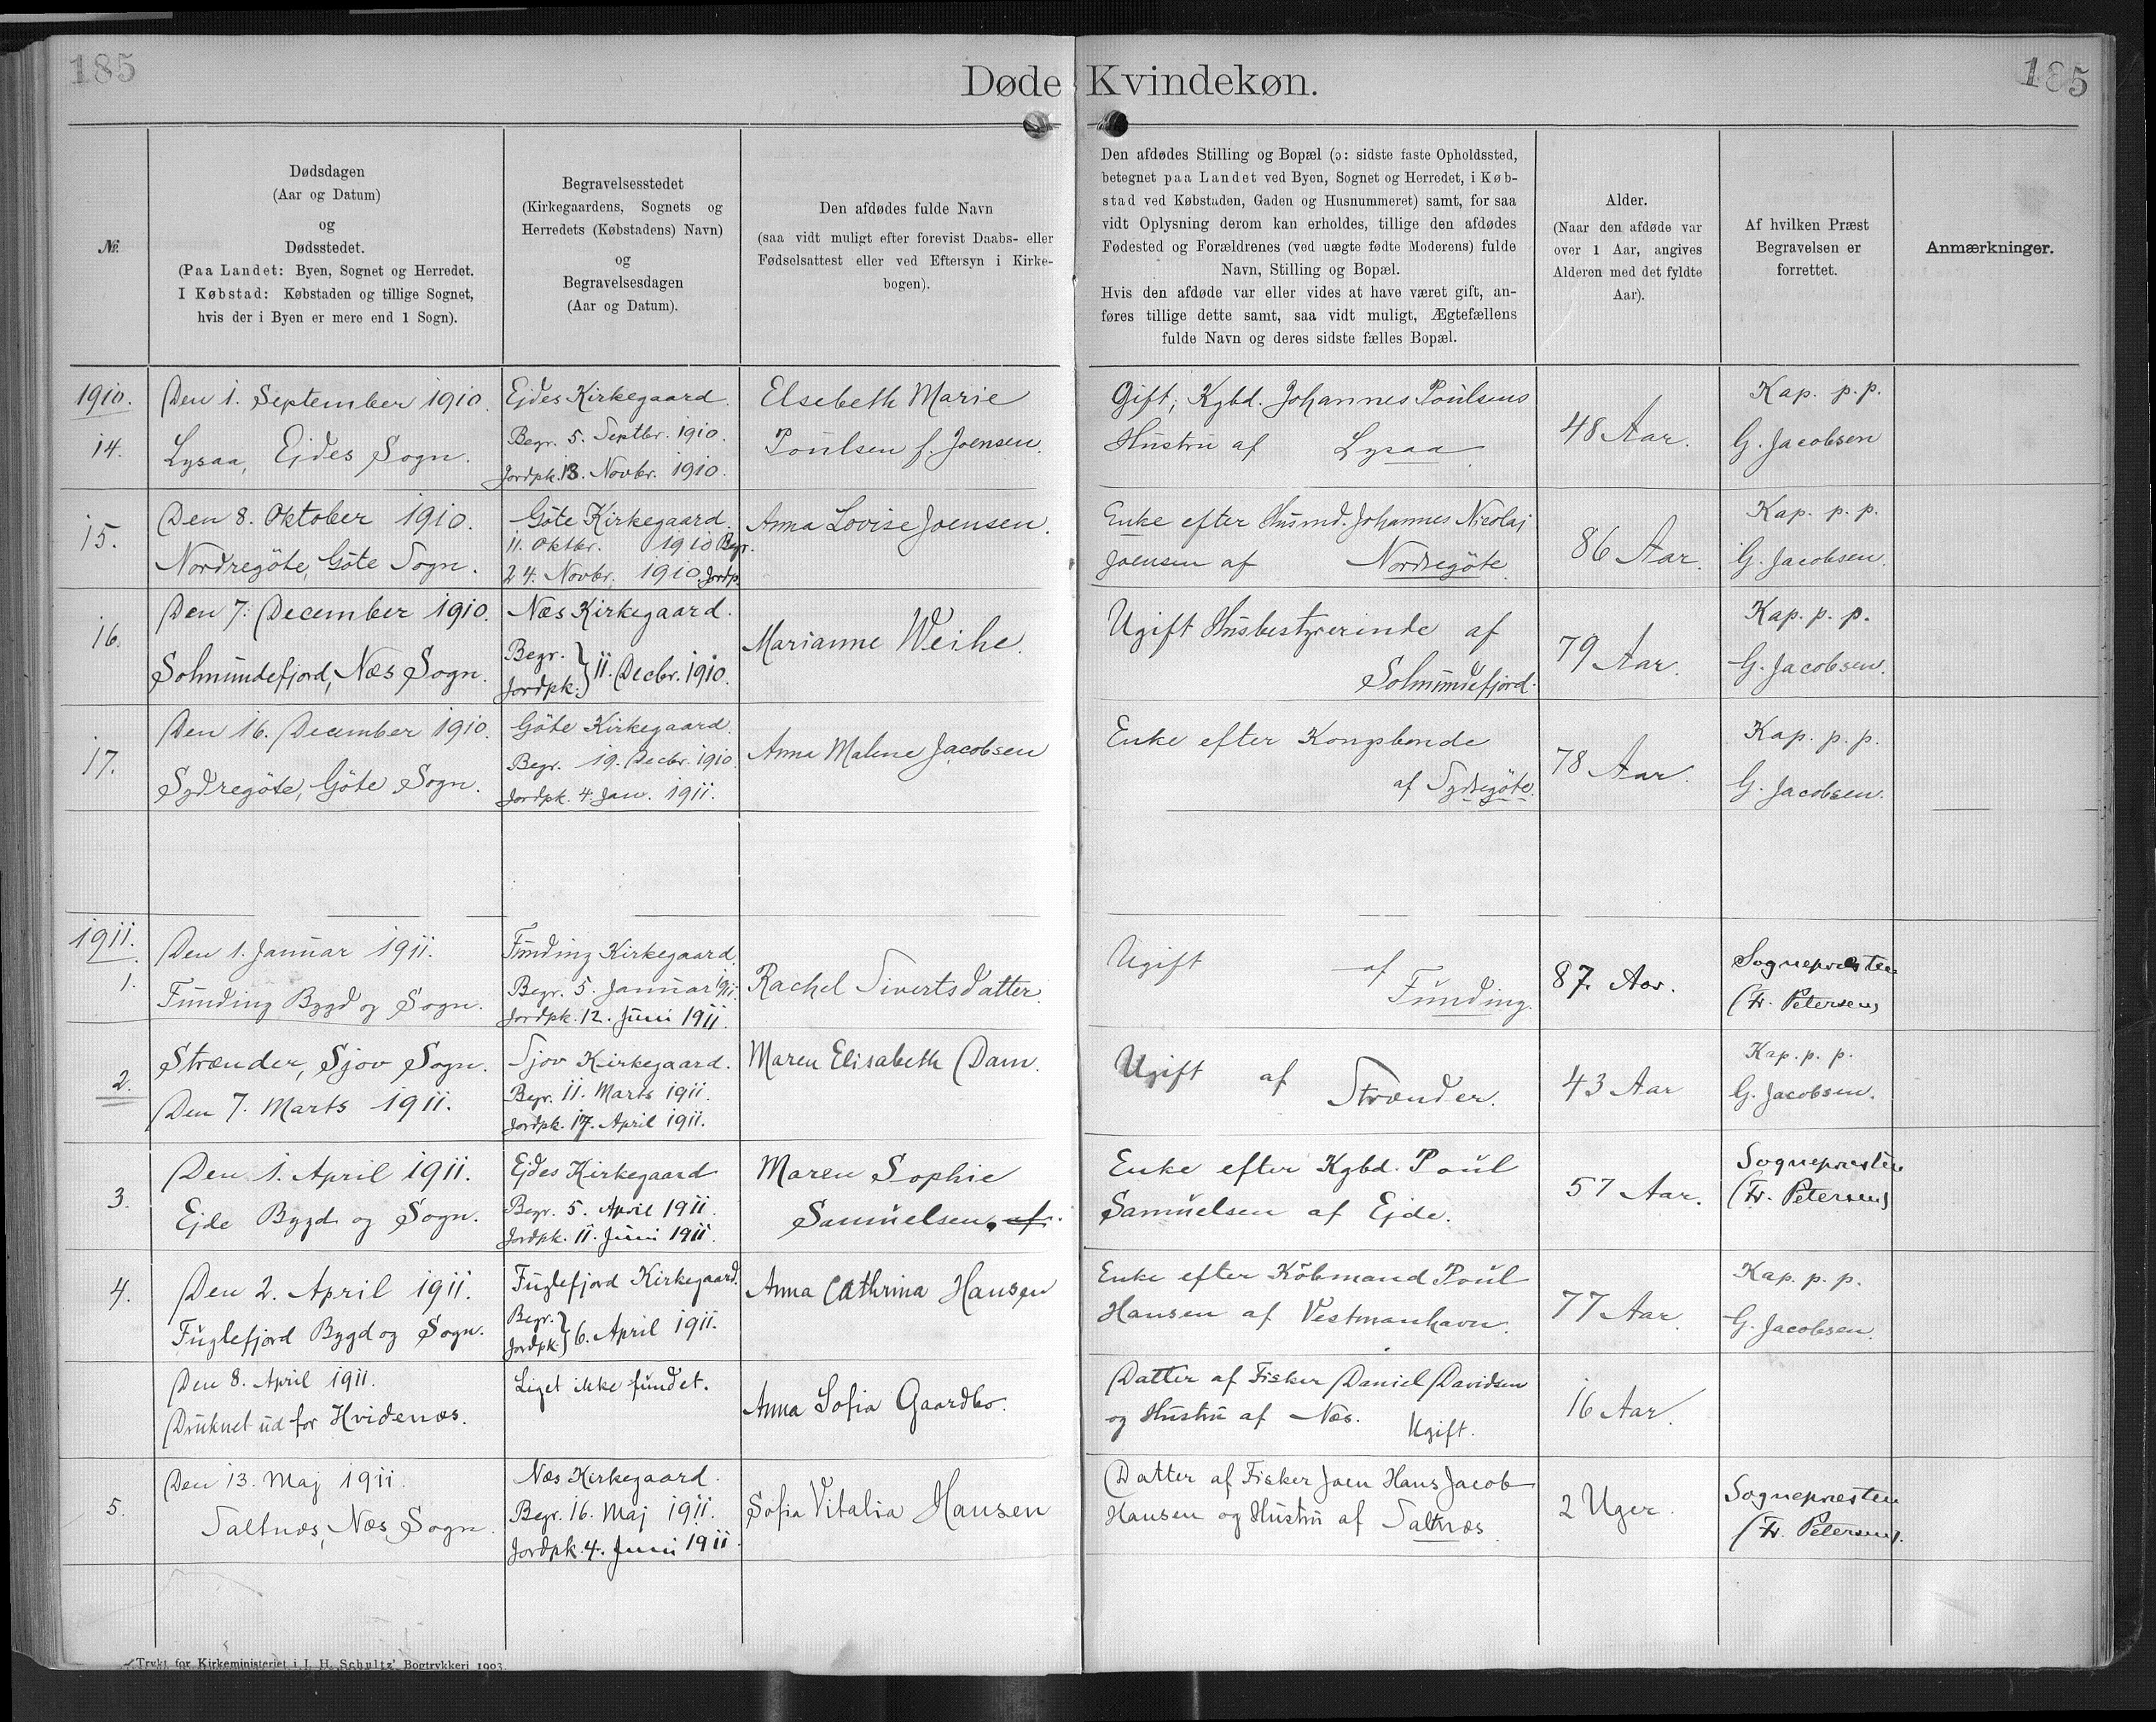 185
Døde Kvindekøn.
185
Nr.
Dødsdagen
(Aar og Datum)
og
Dødsstedet.
(Paa Landet: Byen, Sognet og Herredet.
I Købstad: Købstaden og tillige Sognet,
hvis der i Byen er mere end 1 Sogn).
Begravelsesstedet
(Kirkegaardens, Sognets og
Herredets (Købstadens) Navn)
og
Begravelsesdagen
(Aar og Datum).
Den afdødes fulde Navn
(saa vidt muligt efter forevist Daabs- eller
Fødselsattest eller ved Eftersyn i Kirke-
bogen).
Den afdødes Stilling og Bopæl (ɔ: sidste faste Opholdssted,
betegnet paa Landet ved Byen, Sognet og Herredet, i Køb-
stad ved Købstaden, Gaden og Husnummeret) samt, for saa
vidt Oplysning derom kan erholdes, tillige den afdødes
Fødested og Forældrenes (ved uægte fødte Moderens) fulde
Navn, Stilling og Bopæl.
Hvis den afdøde var eller vides at have været gift, an-
føres tillige dette samt, saa vidt muligt, Ægtefællens
fulde Navn og deres sidste fælles Bopæl.
Alder.
(Naar den afdøde var
over 1 Aar, angives
Alderen med det fyldte
Aar).
Af hvilken Præst
Begravelsen er
forrettet.
Anmærkninger.
1910.
14.
Den 1. September 1910.
Lysaa, Ejdes Sogn.
Ejdes Kirkegaard
Begr. 5. Septbr. 1910.
Jordpk. 13. Novbr. 1910.
Elsebeth Marie
Poulsen f. Joensen.
Gift, Kgbd. Johannes Poulsens
Hustru af Lysaa
48 Aar.
Kap. p. p.
G. Jacobsen
15.
Den 8. Oktober 1910.
Nordregöte, Göte Sogn.
Göte Kirkegaard.
11. Oktbr. 1910 Begr.
24. Novbr. 1910 Jordp.
Anna Lovise Joensen.
Enke efter Husmd. Johannes Nicolaj
Joensen af Nordregöte.
86 Aar.
Kap. p. p.
G. Jacobsen.
16.
Den 7. December 1910.
Solmundefjord, Næs Sogn.
Næs Kirkegaard.
Begr.
Jordpk. } 11. Decbr. 1910.
Marianne Weihe.
Ugift Husbestyrerinde af
Solmundefjord.
79 Aar.
Kap. p. p.
G. Jacobsen.
17.
Den 16. December 1910.
Sydregöte, Göte Sogn.
Göte Kirkegaard.
Begr. 19. Decbr. 1910.
Jordpk. 4. Jan. 1911.
Anna Malene Jacobsen
Enke efter Kongsbonde
af Sydregöte.
78 Aar.
Kap. p. p.
G. Jacobsen.
1911.
1.
Den 1. Januar 1911.
Funding Bygd og Sogn.
Funding Kirkegaard.
Begr. 5. Januar 1911.
Jordpk. 12. Juni 1911.
Rachel Sivertsdatter.
Ugift af
Funding.
87. Aar.
Sognepræsten
(Fr. Petersen)
2.
Strænder, Sjov Sogn.
Den 7. Marts 1911.
Sjov Kirkegaard.
Begr. 11. Marts 1911.
Jordpk. 17. April 1911.
Maren Elisabeth Dam.
Ugift af Strænder.
43 Aar
Kap. p. p.
G. Jacobsen.
3.
Den 1. April 1911.
Ejde Bygd og Sogn.
Ejdes Kirkegaard
Begr. 5. April 1911.
Jordpk. 11. Juni 1911.
Maren Sophie
Samuelsen, af.
Enke efter Kgbd. Poul
Samuelsen af Ejde.
57 Aar.
Sognepræsten
(Fr. Petersen)
4.
Den 2. April 1911.
Fuglefjord Bygd og Sogn.
Fuglefjord Kirkegaard.
Begr.
Jordpk. } 6. April 1911.
Anna Cathrina Hansen
Enke efter Köbmand Poul
Hansen af Vestmanhavn.
77 Aar.
Kap. p. p.
G. Jacobsen.
Den 8. April 1911.
Druknet ud for Hvidenæs.
Liget ikke fundet.
Anna Sofia Gaardbo.
Datter af Fisker Daniel Davidsen
og Hustru af Næs.
Ugift.
16 Aar.
5.
Den 13. Maj 1911.
Saltnæs, Næs Sogn.
Næs Kirkegaard.
Begr. 16. Maj 1911.
Jordpk. 4. Juni 1911.
Sofia Vitalia Hansen
Datter af Fisker Joen Hans Jacob
Hansen og Hustru af Saltnæs
2 Uger.
Sognepræsten
(Fr. Petersen).
Trykt for Kirkeministeriet i J. H. Schultz' Bogtrykkeri 1903.